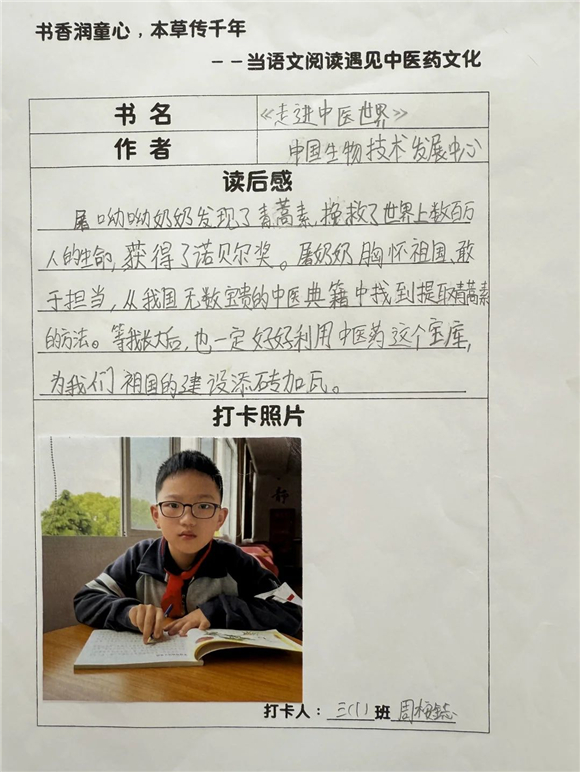 书香润童心，本草传千年
——当语文阅读遇见中医药文化
书 名 《走进中医世界》
作 者 中国生物技术发展中心
读后感
屠呦呦奶奶发现了青蒿素,挽救了世界上数百万
人的生命,获得了诺贝尔奖。屠奶奶胸怀祖国、敢
于担当，从我国无数宝贵的中医典籍中找到提取青蒿素
的方法。等我长大后,也一定好好利用中医药这个宝库,
为我们祖国的建设添砖加瓦。
打卡照片
静
打卡人：三(1)班 周